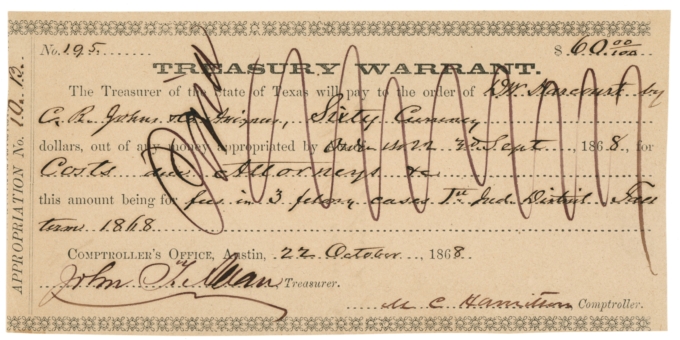 No. 195. $ 60 00/100
TREASURY WARRANT.
The Treasurer of the State of Texas will pay to the order of D.W. Harcourt by
C. R. Johns &amp; Sixty Currency
dollars, out of any money appropriated by Order No 22 3d Sept, 1868, for
Costs due Attorneys &c
this amount being for fees in 3 felony cases 1st Jud. District Fall
terms 1868
COMPTROLLER'S OFFICE, Austin, 22 October, 1868.
John Y. Treasurer.
M. C. Hamilton Comptroller.
APPROPRIATION No. 10.12.
Paid